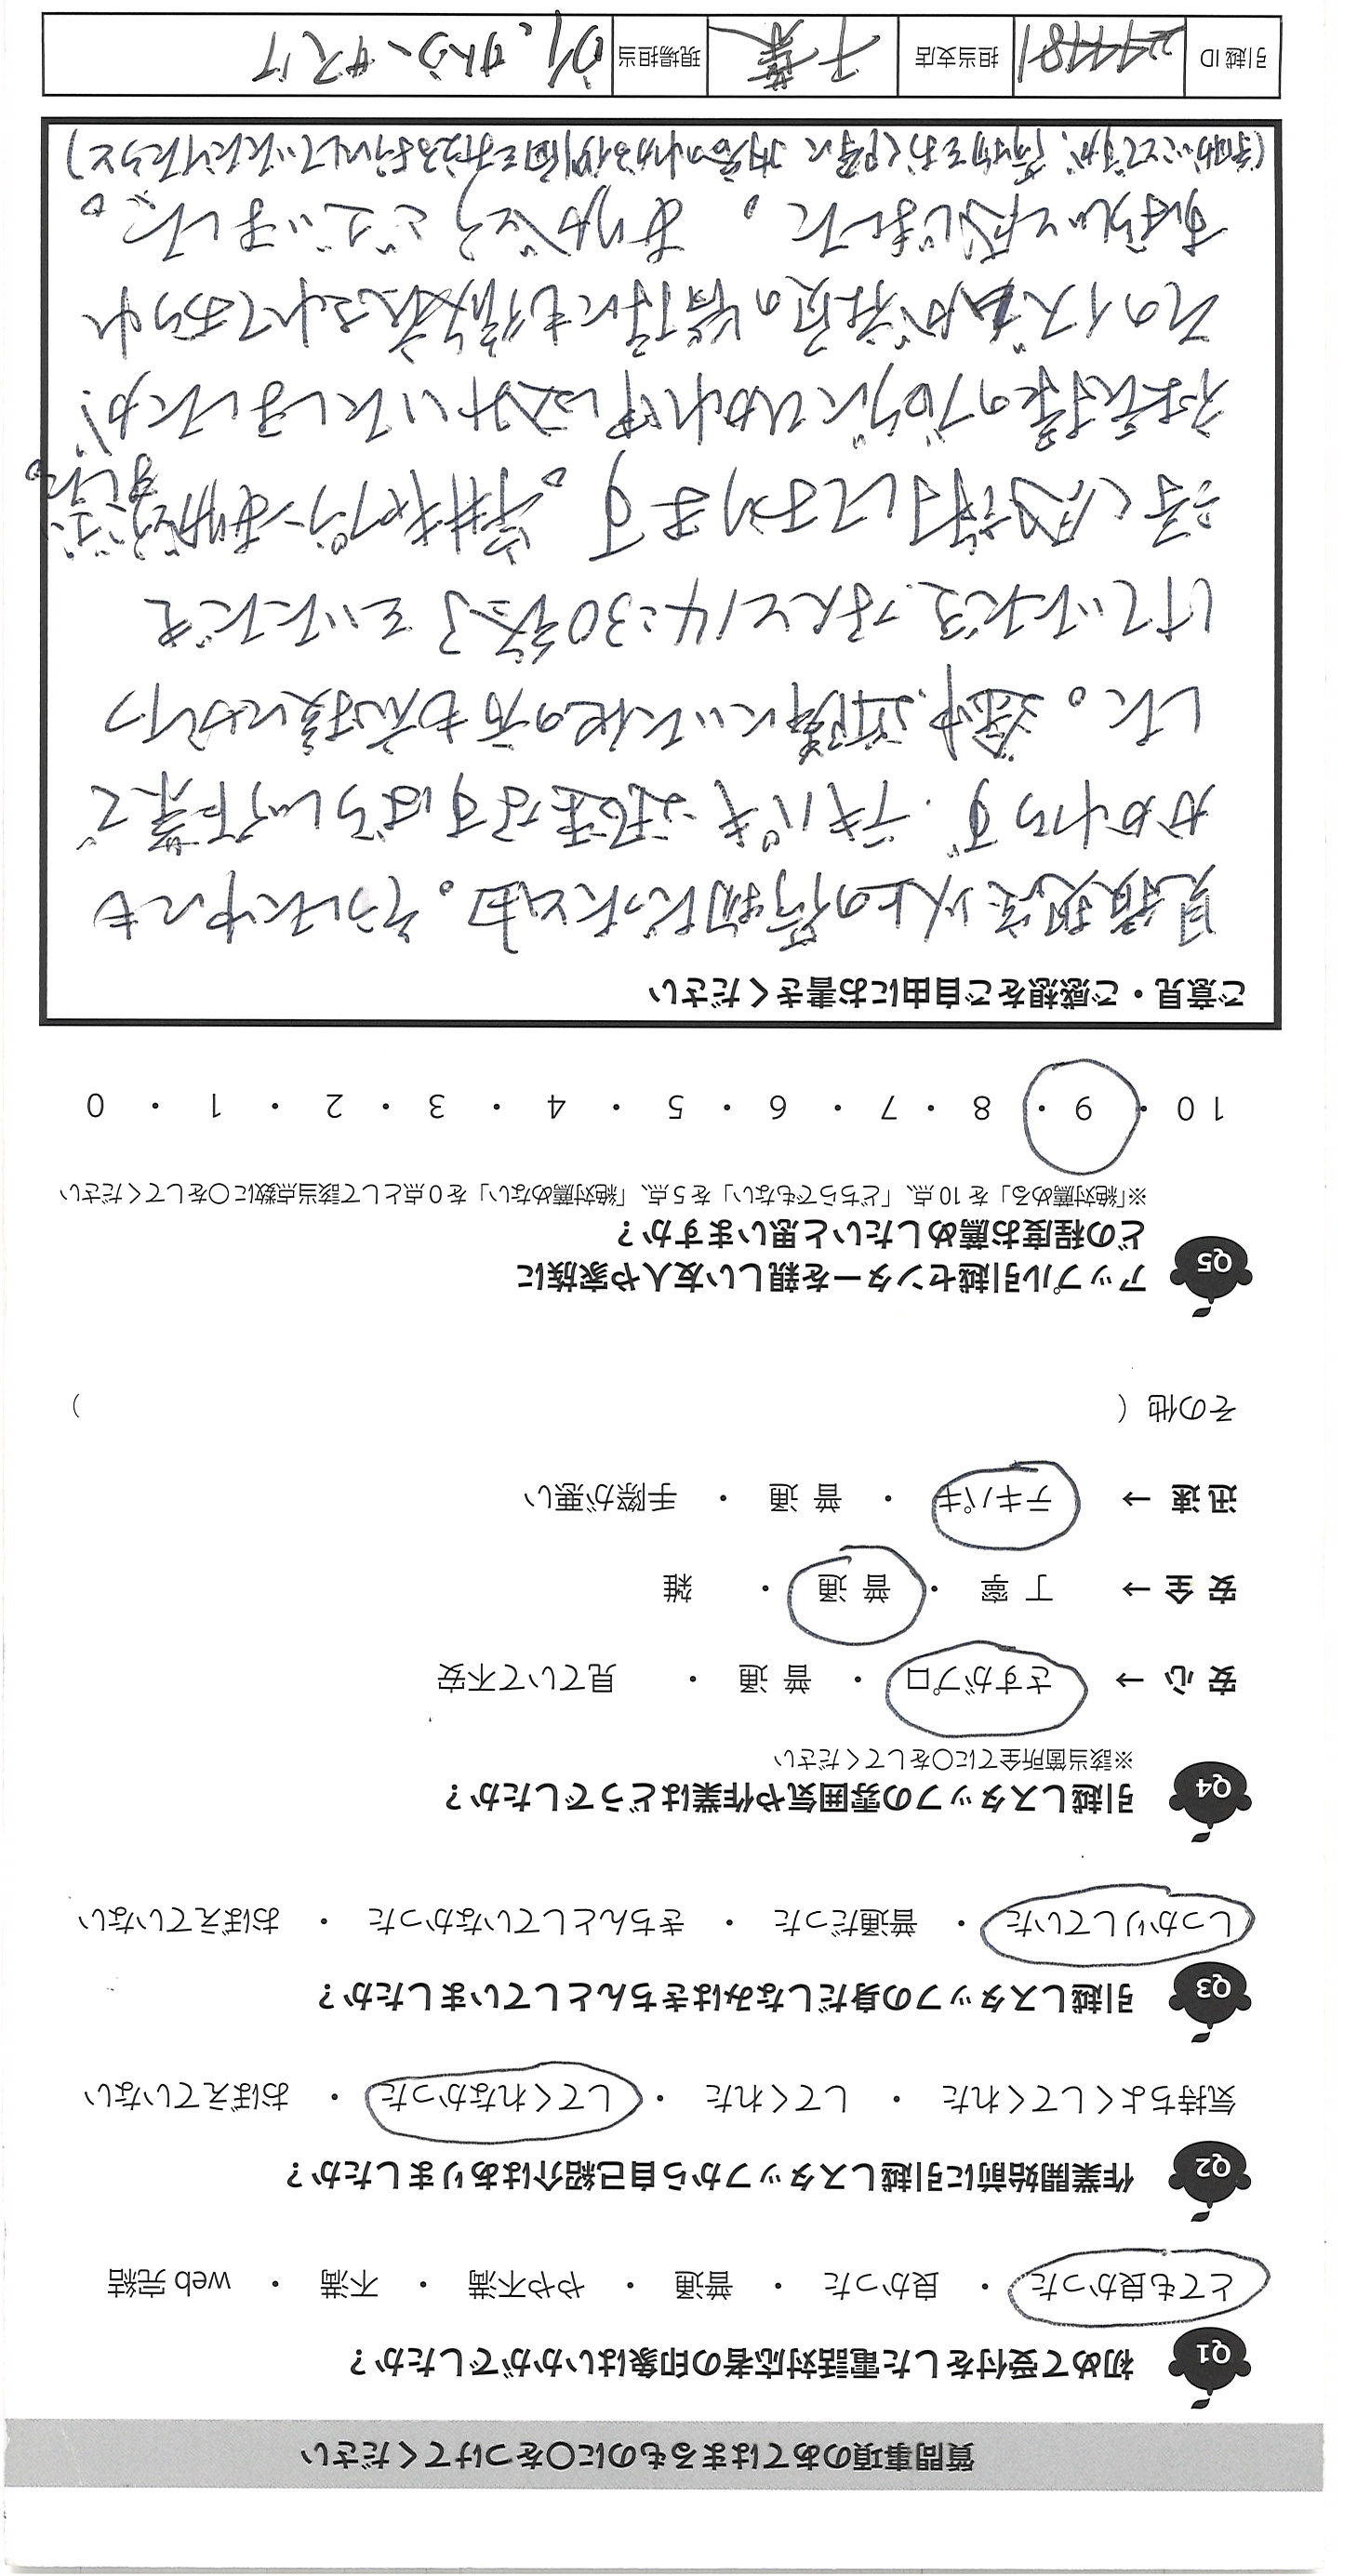 質問事項のあてはまるものに○をつけてください
Q1 初めて受付をした電話対応者の印象はいかがでしたか？
とても良かった ・ 良かった ・ 普通 ・ やや不満 ・ 不満 ・ web 完結
Q2 作業開始前に引越しスタッフから自己紹介はありましたか？
気持ちよくしてくれた ・ してくれた ・ してくれなかった ・ おぼえていない
Q3 引越しスタッフの身だしなみはきちんとしていましたか？
しっかりしていた ・ 普通だった ・ きちんとしていなかった ・ おぼえていない
Q4 引越しスタッフの雰囲気や作業はどうでしたか？
※該当箇所全てに○をしてください
安 心 → さすがプロ ・ 普 通 ・ 見ていて不安
安 全 → 丁 寧 ・ 普 通 ・ 雑
迅 速 → テキパキ ・ 普 通 ・ 手際が悪い
その他 （ ）
Q5 アップル引越センターを親しい友人や家族に
どの程度お薦めしたいと思いますか？
※「絶対薦める」を 10 点、「どちらでもない」を 5 点、「絶対薦めない」を 0 点として該当点数に○をしてください
10 ・ 9 ・ 8 ・ 7 ・ 6 ・ 5 ・ 4 ・ 3 ・ 2 ・ 1 ・ 0
ご意見・ご感想をご自由にお書きください
見積想定以上の荷物だったと由。そうにゅんも
かかわらず、テキパキ迅速なすばらしい作業で
した。途中、近隣にいた他の方も応援にかけつ
けていただき、なんと14:30終了といただき
深く感謝しております。岩井キャプテンありがとうござい
ました。
社長様のブログにひかれ申し込みいたしましたが、
そのイズムが社員の皆様にも浸透されており
すばらしいと感じました。ありがとうございました。
(細かいことですが、荷物をおく際に内容のわかる側面を
引越 ID 担当支店 千葉 現場担当